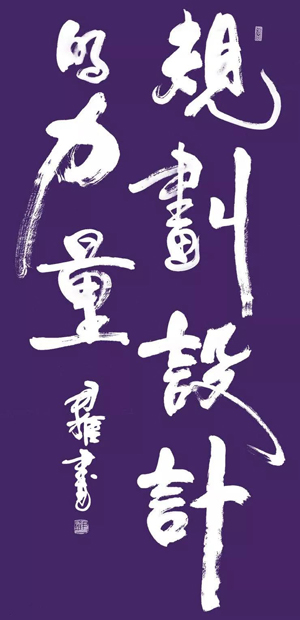 規劃設計
的力量
書